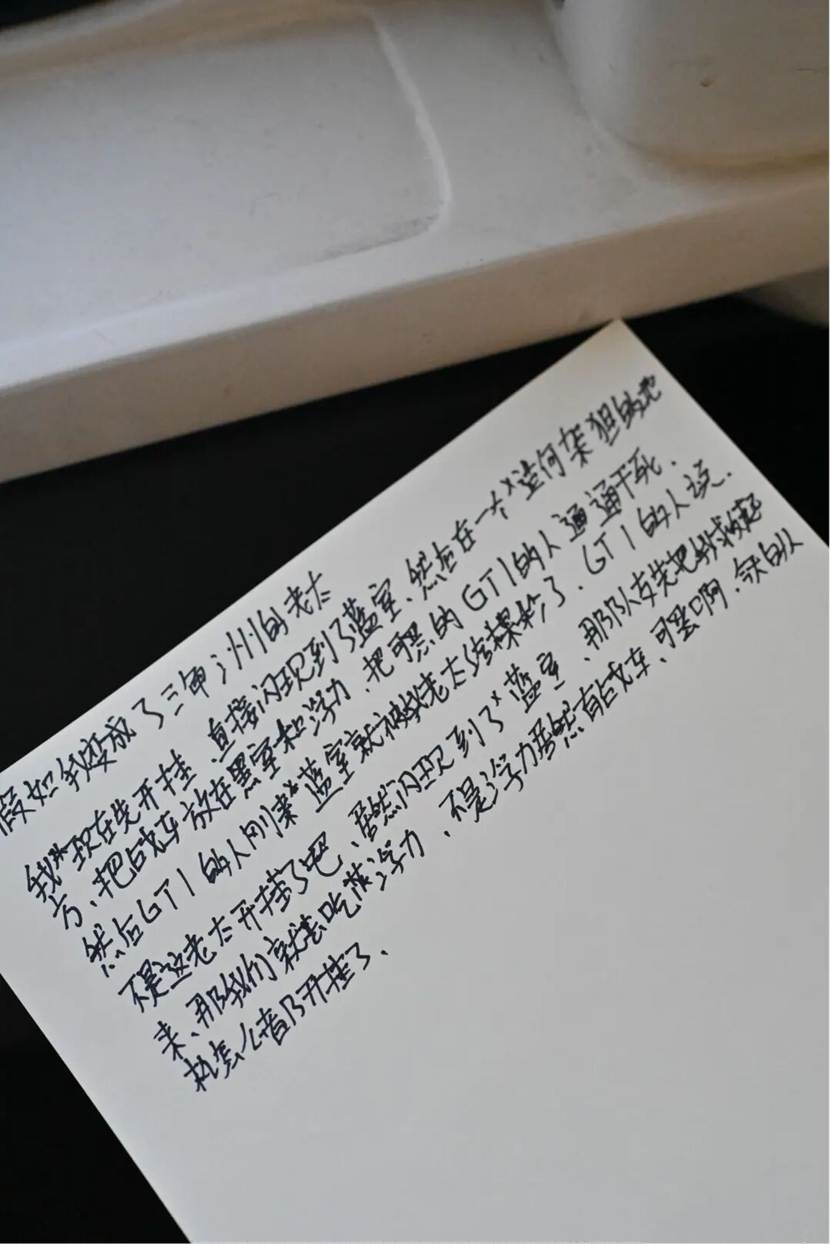 假如我变成了三角洲的老太
我现在先开挂、直接闪现到了蓝室、然后在一个造何架狙的地
方、把战车放在黑室和浮力、把黑的GTI的人通通干死.
然后GTI的人刚来蓝室就被我老太给撂轮了、GTI的人说.
不是这老太开挂了吧、居然闪现到了蓝室、那队友先把我救起
来、那我们就去吃浮力、不是浮力居然有战车、可恶啊、
机怎么着开挂了、